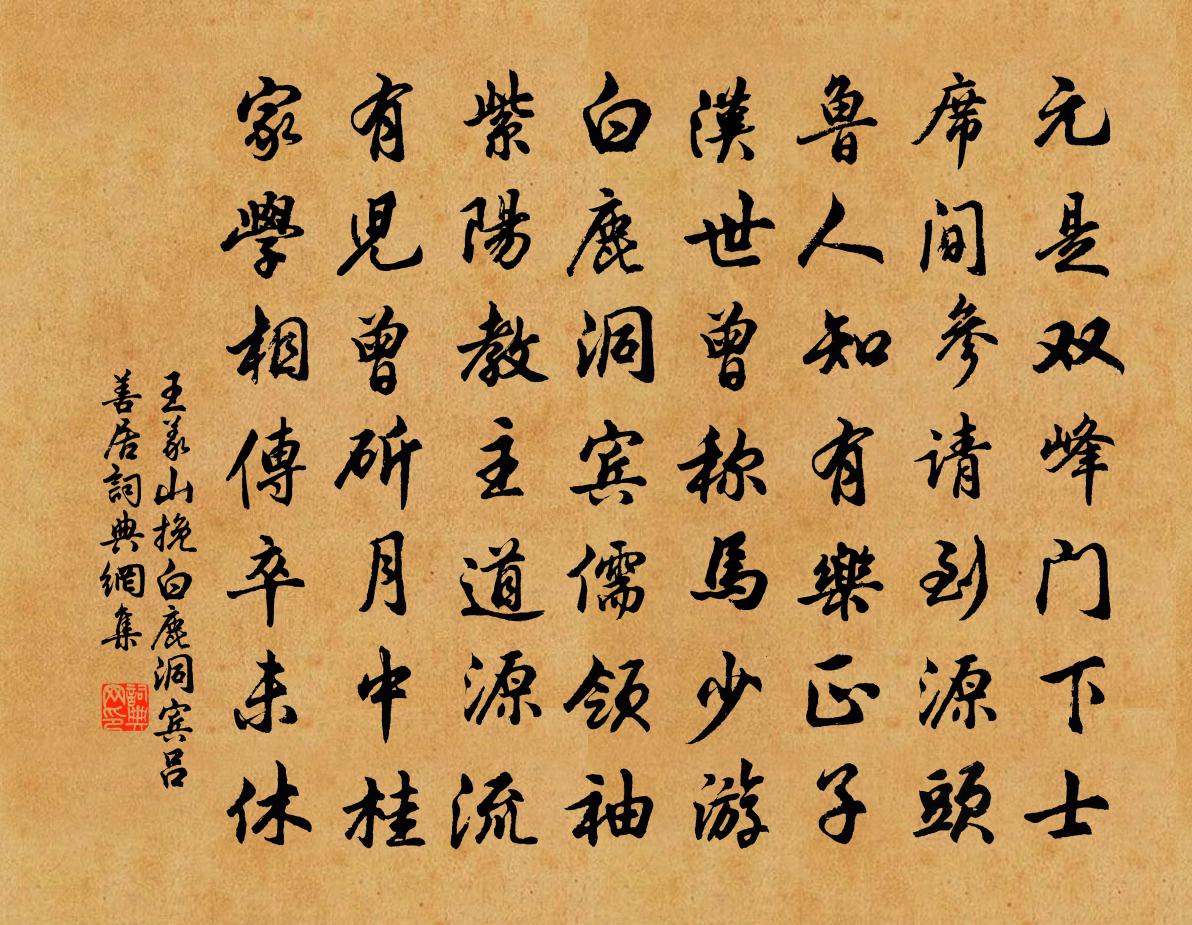 元是双峰门下士
席间参请到源頭
魯人知有樂正子
漢世曾称馬少游
白鹿洞宾儒领袖
紫陽教主道源流
有児曾斫月中桂
家學相傳卒未休
王义山挽白鹿洞宾吕
善居詞典網集
詞典
网印